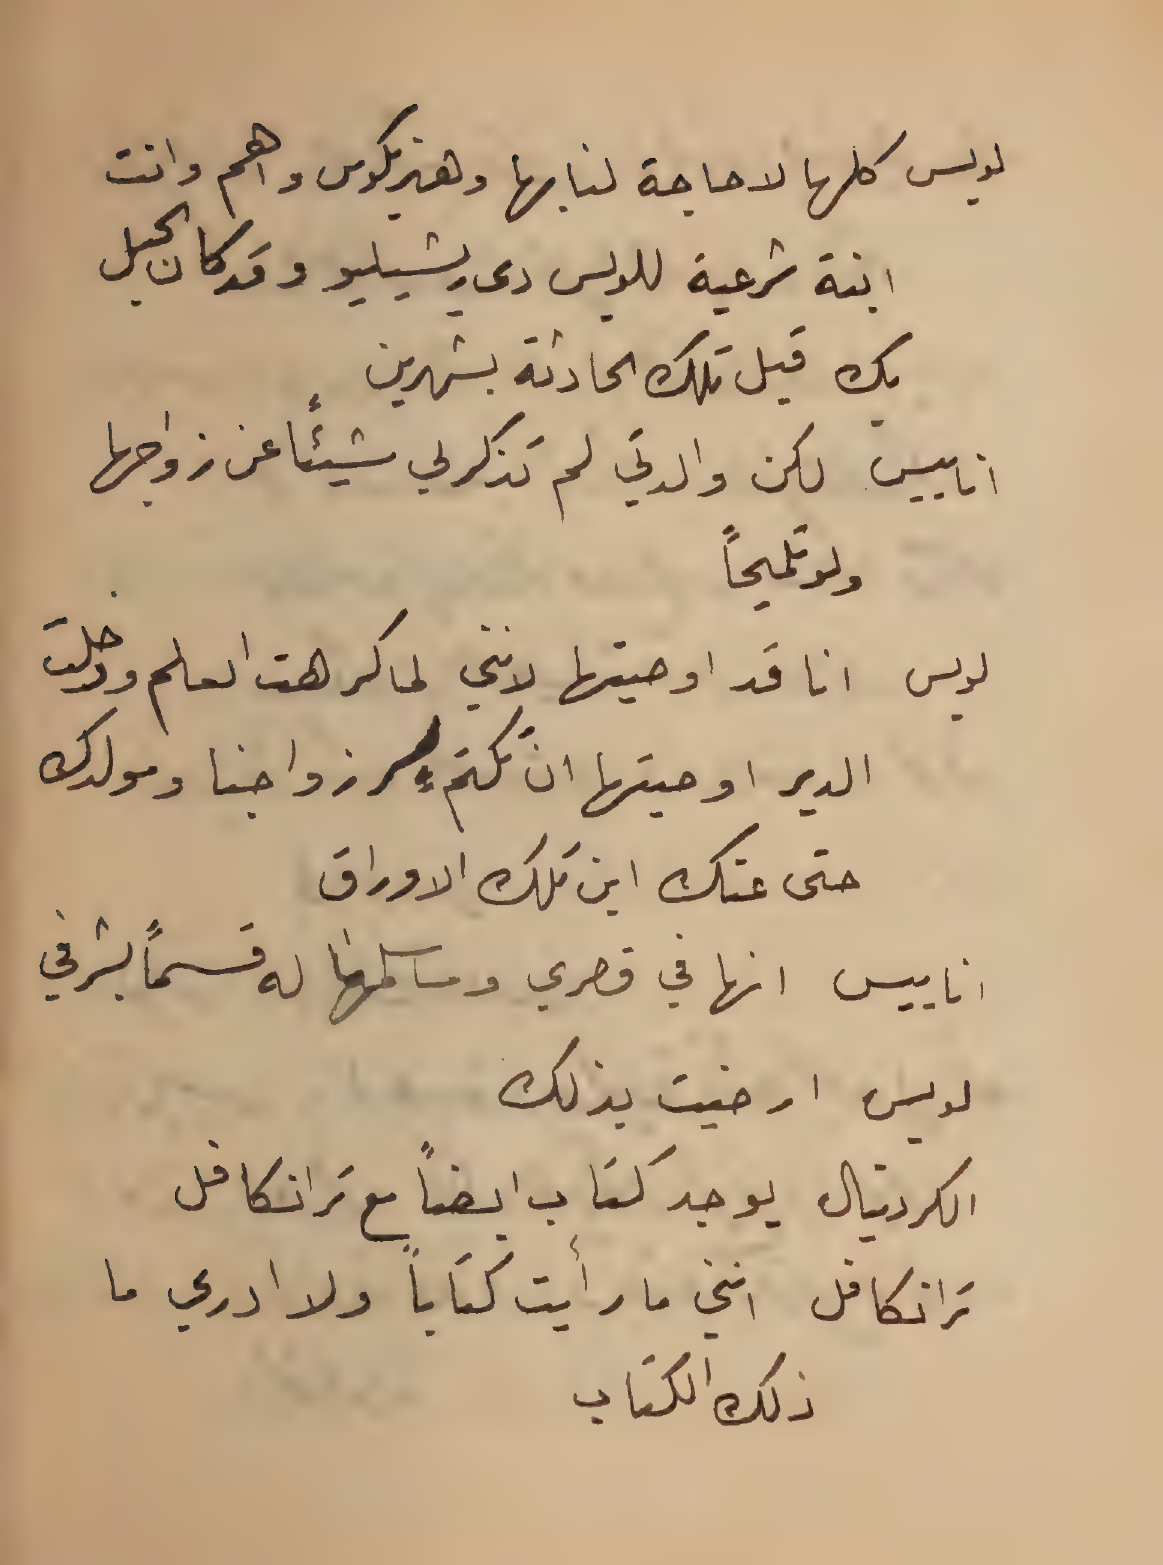 لويس كلها لا حاجة لنا بها وهنريكوس واهم وانت
ابنة شرعية للويس دى ريشيليو وقد كان الحبل
بك قبل تلك الحادثة بشهرين
اناييس لكن والدتي لم تذكر لي شيئًا عن زواجها
ولو تلميحاً
لويس انا قد اوصيتها لانني لما كرهت العلم ودخلت
الدير اوصيتها ان تكتم سر زواجنا ومولدك
حتى عنك اين تلك الاوراق
اناييس انها في قصري وساسلمها له قسماً بشرفي
لويس ارضيت بذلك
الكردينال يوجد كتاب ايضاً مع ترانكافل
ترانكافل انني ما رأيت كتاباً ولا ادري ما
ذلك الكتاب